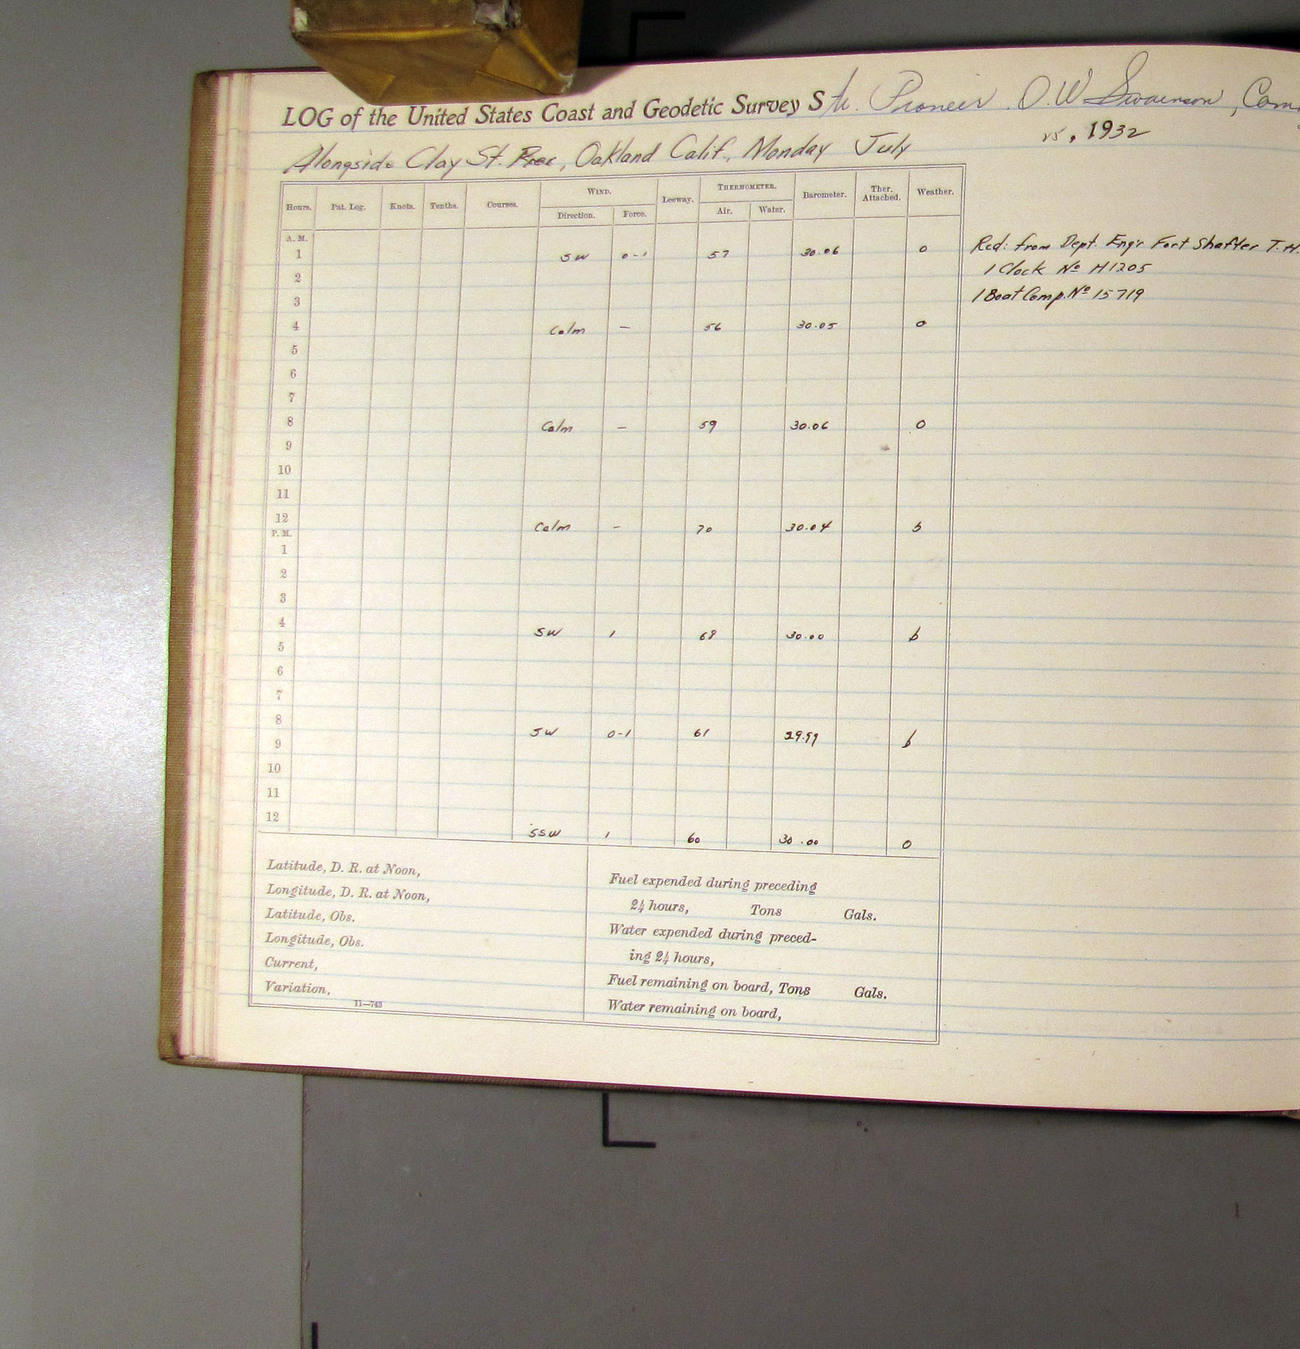 LOG of the United States Coast and Geodetic Survey Str. Pioneer. O.W. Swainson, Com
Alongside Clay St. Pier, Oakland Calif., Monday July 25, 1932
Hours. Pat. Log. Knots. Tenths. Courses. WIND. Leeway. THERMOMETER. Barometer. Ther. Attached. Weather.
Direction. Force. Air. Water.
A. M.
1 SW 0-1 57 30.06 o
2
3
4 Calm – 56 30.05 o
5
6
7
8 Calm – 59 30.06 o
9
10
11
12 Calm – 70 30.04 b
P. M.
1
2
3
4 SW 1 68 30.00 b
5
6
7
8 SW 0-1 61 29.99 b
9
10
11
12 SSW 1 60 30.00 o
Rcd: from Dept. Eng'r Fort Shafter T.H.
1 Clock No H1205
1 Boat Comp. No 15719
Latitude, D. R. at Noon,
Longitude, D. R. at Noon,
Latitude, Obs.
Longitude, Obs.
Current,
Variation,
11—743
Fuel expended during preceding
24 hours, Tons Gals.
Water expended during preced-
ing 24 hours,
Fuel remaining on board, Tons Gals.
Water remaining on board,